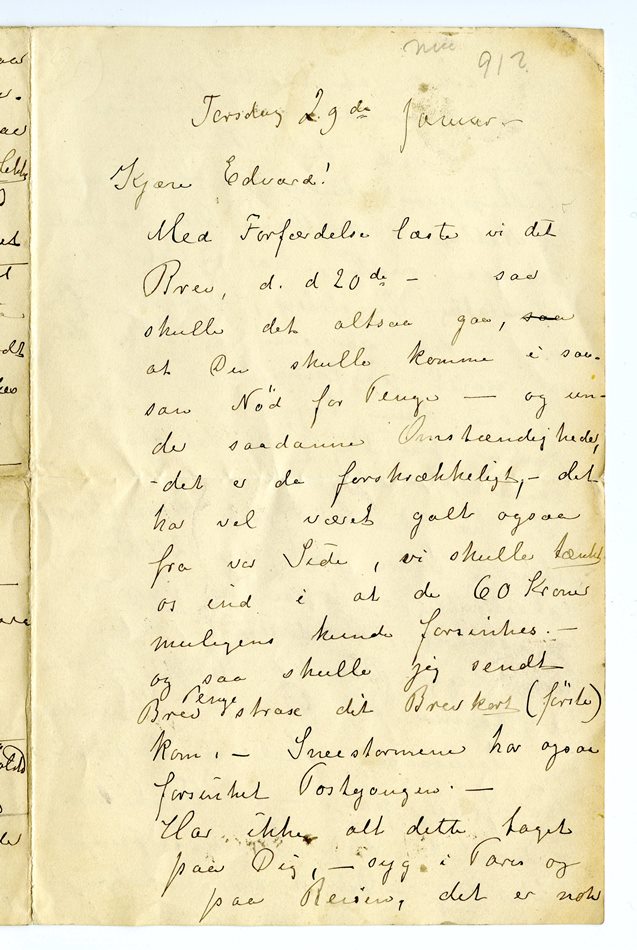 912
Torsdag 29de Januar
Kjære Edvard!
Med Forfærdelse læste vi dit
Brev, d. d 20de – saa
skulle det altsaa gaa, saa
at Du skulle komme i saa-
dan Nöd for Penge — og un-
der saadanne Omstændigheder,
– det er da forskrækkeligt, – det
har vel været galt ogsaa
fra vor Side, vi skulle tænkt
os ind i at de 60 Kroner
muligens kunde forsinkes. –
og saa skulle jeg sendt
Penge
Brev strax dit Brevkort (første)
kom. – Sneestormene har ogsaa
forsinket Postgangen. —
Har ikke alt dette taget
paa Dig, – syg i Paris og
paa Reisen, det er nok